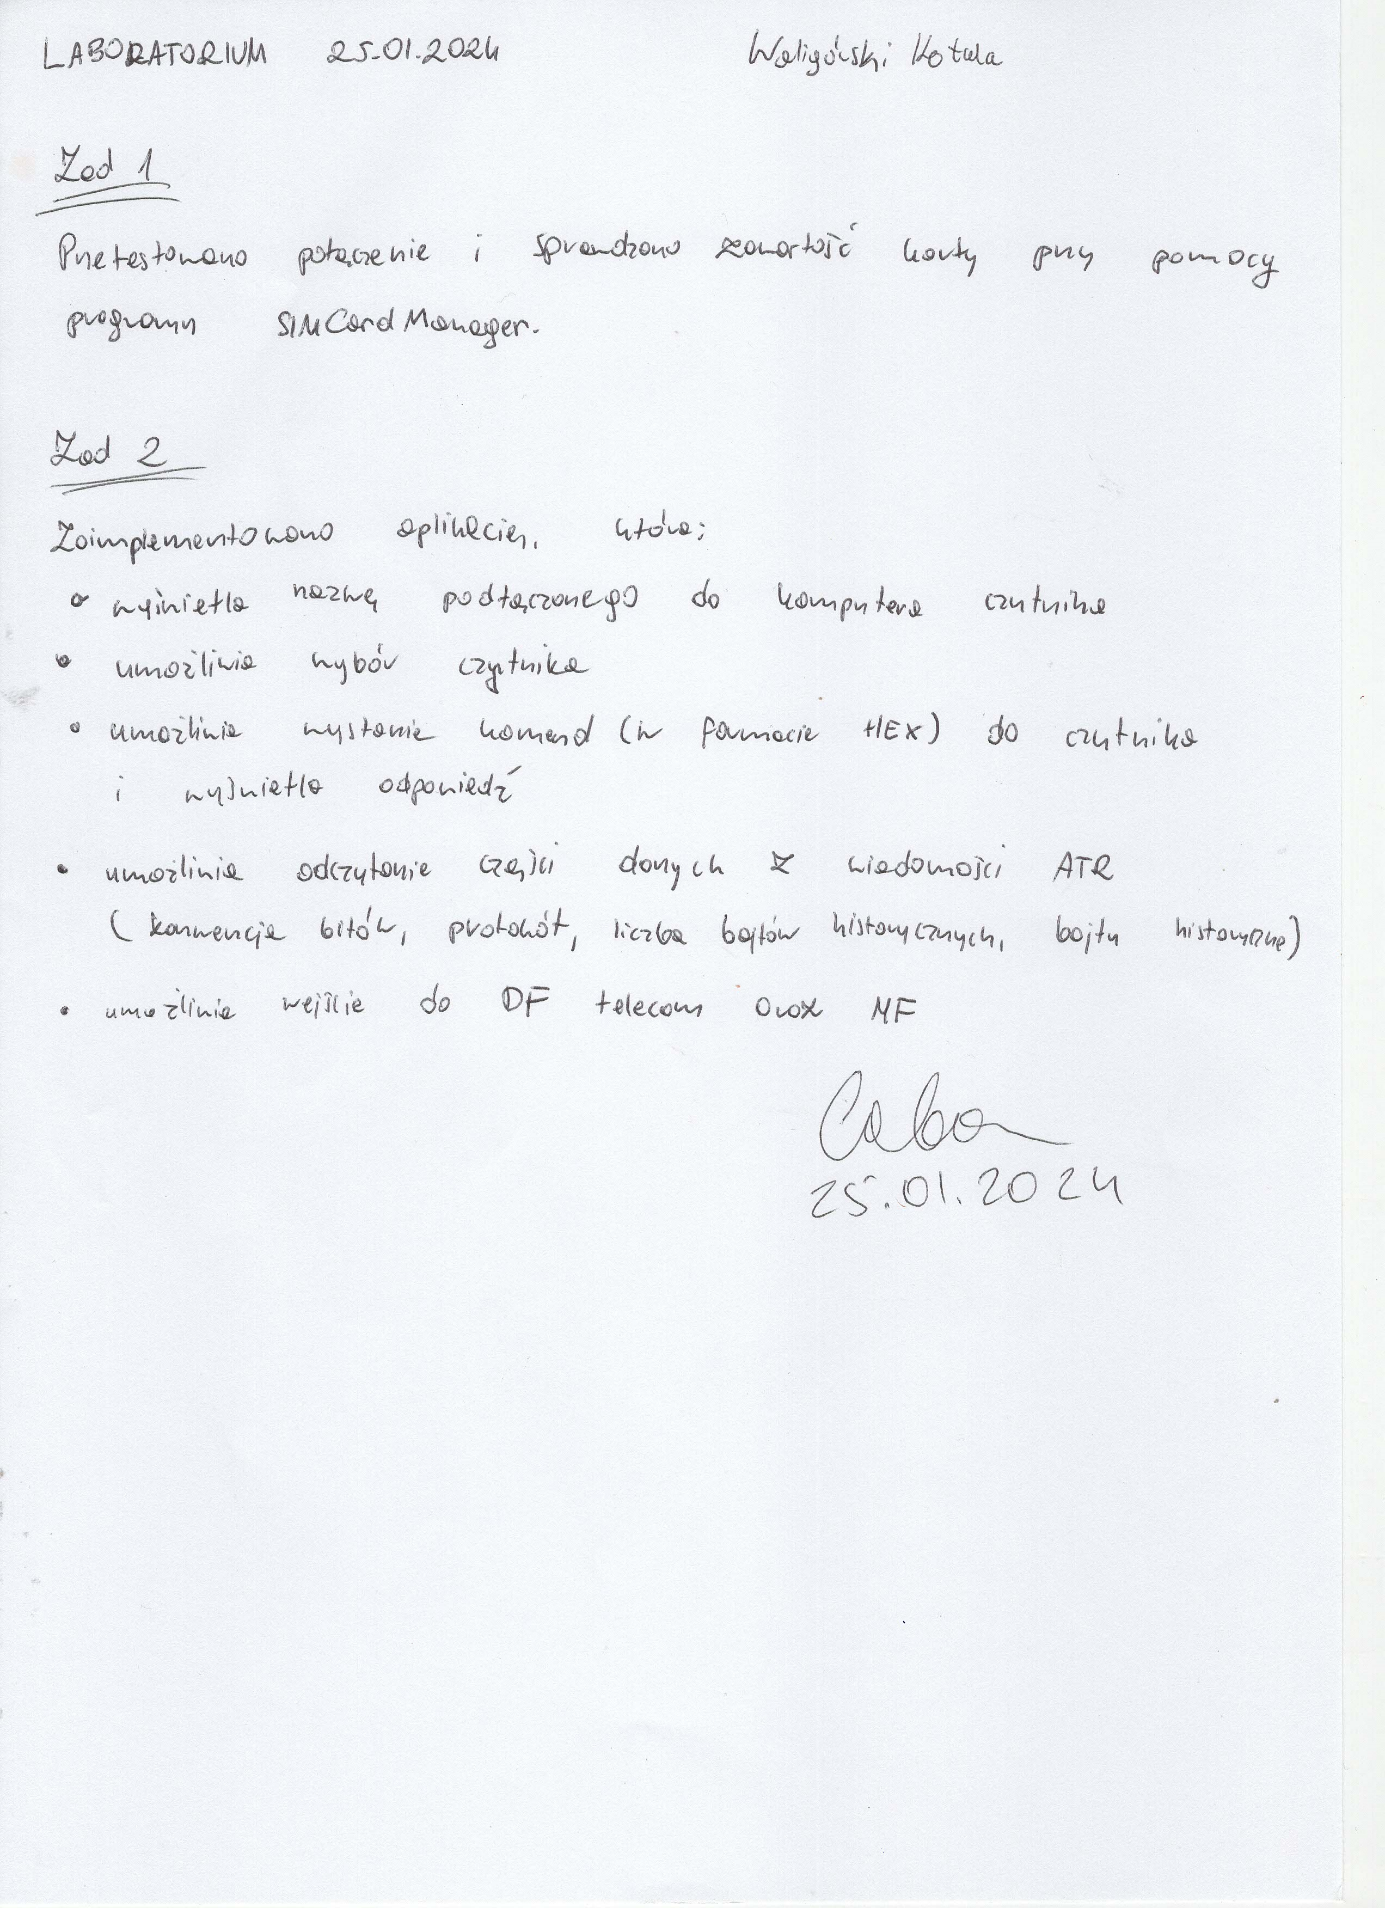 LABORATORIUM 25.01.2024 Waligórski Kotula
Zad 1
Przetestowano połączenie i sprawdzono zawartość karty przy pomocy
programu SIMCardManager.
Zad 2
Zaimplementowano aplikację, która:
• wyświetla nazwę podłączonego do komputera czytnika
• umożliwia wybór czytnika
• umożliwia wysłanie komend (w formacie HEX) do czytnika
i wyświetla odpowiedź
• umożliwia odczytanie części danych z wiadomości ATR
(konwencja bitów, protokół, liczba bajtów historycznych, bajty historyczne)
• umożliwia wejście do DF telecom oraz MF
25.01.2024